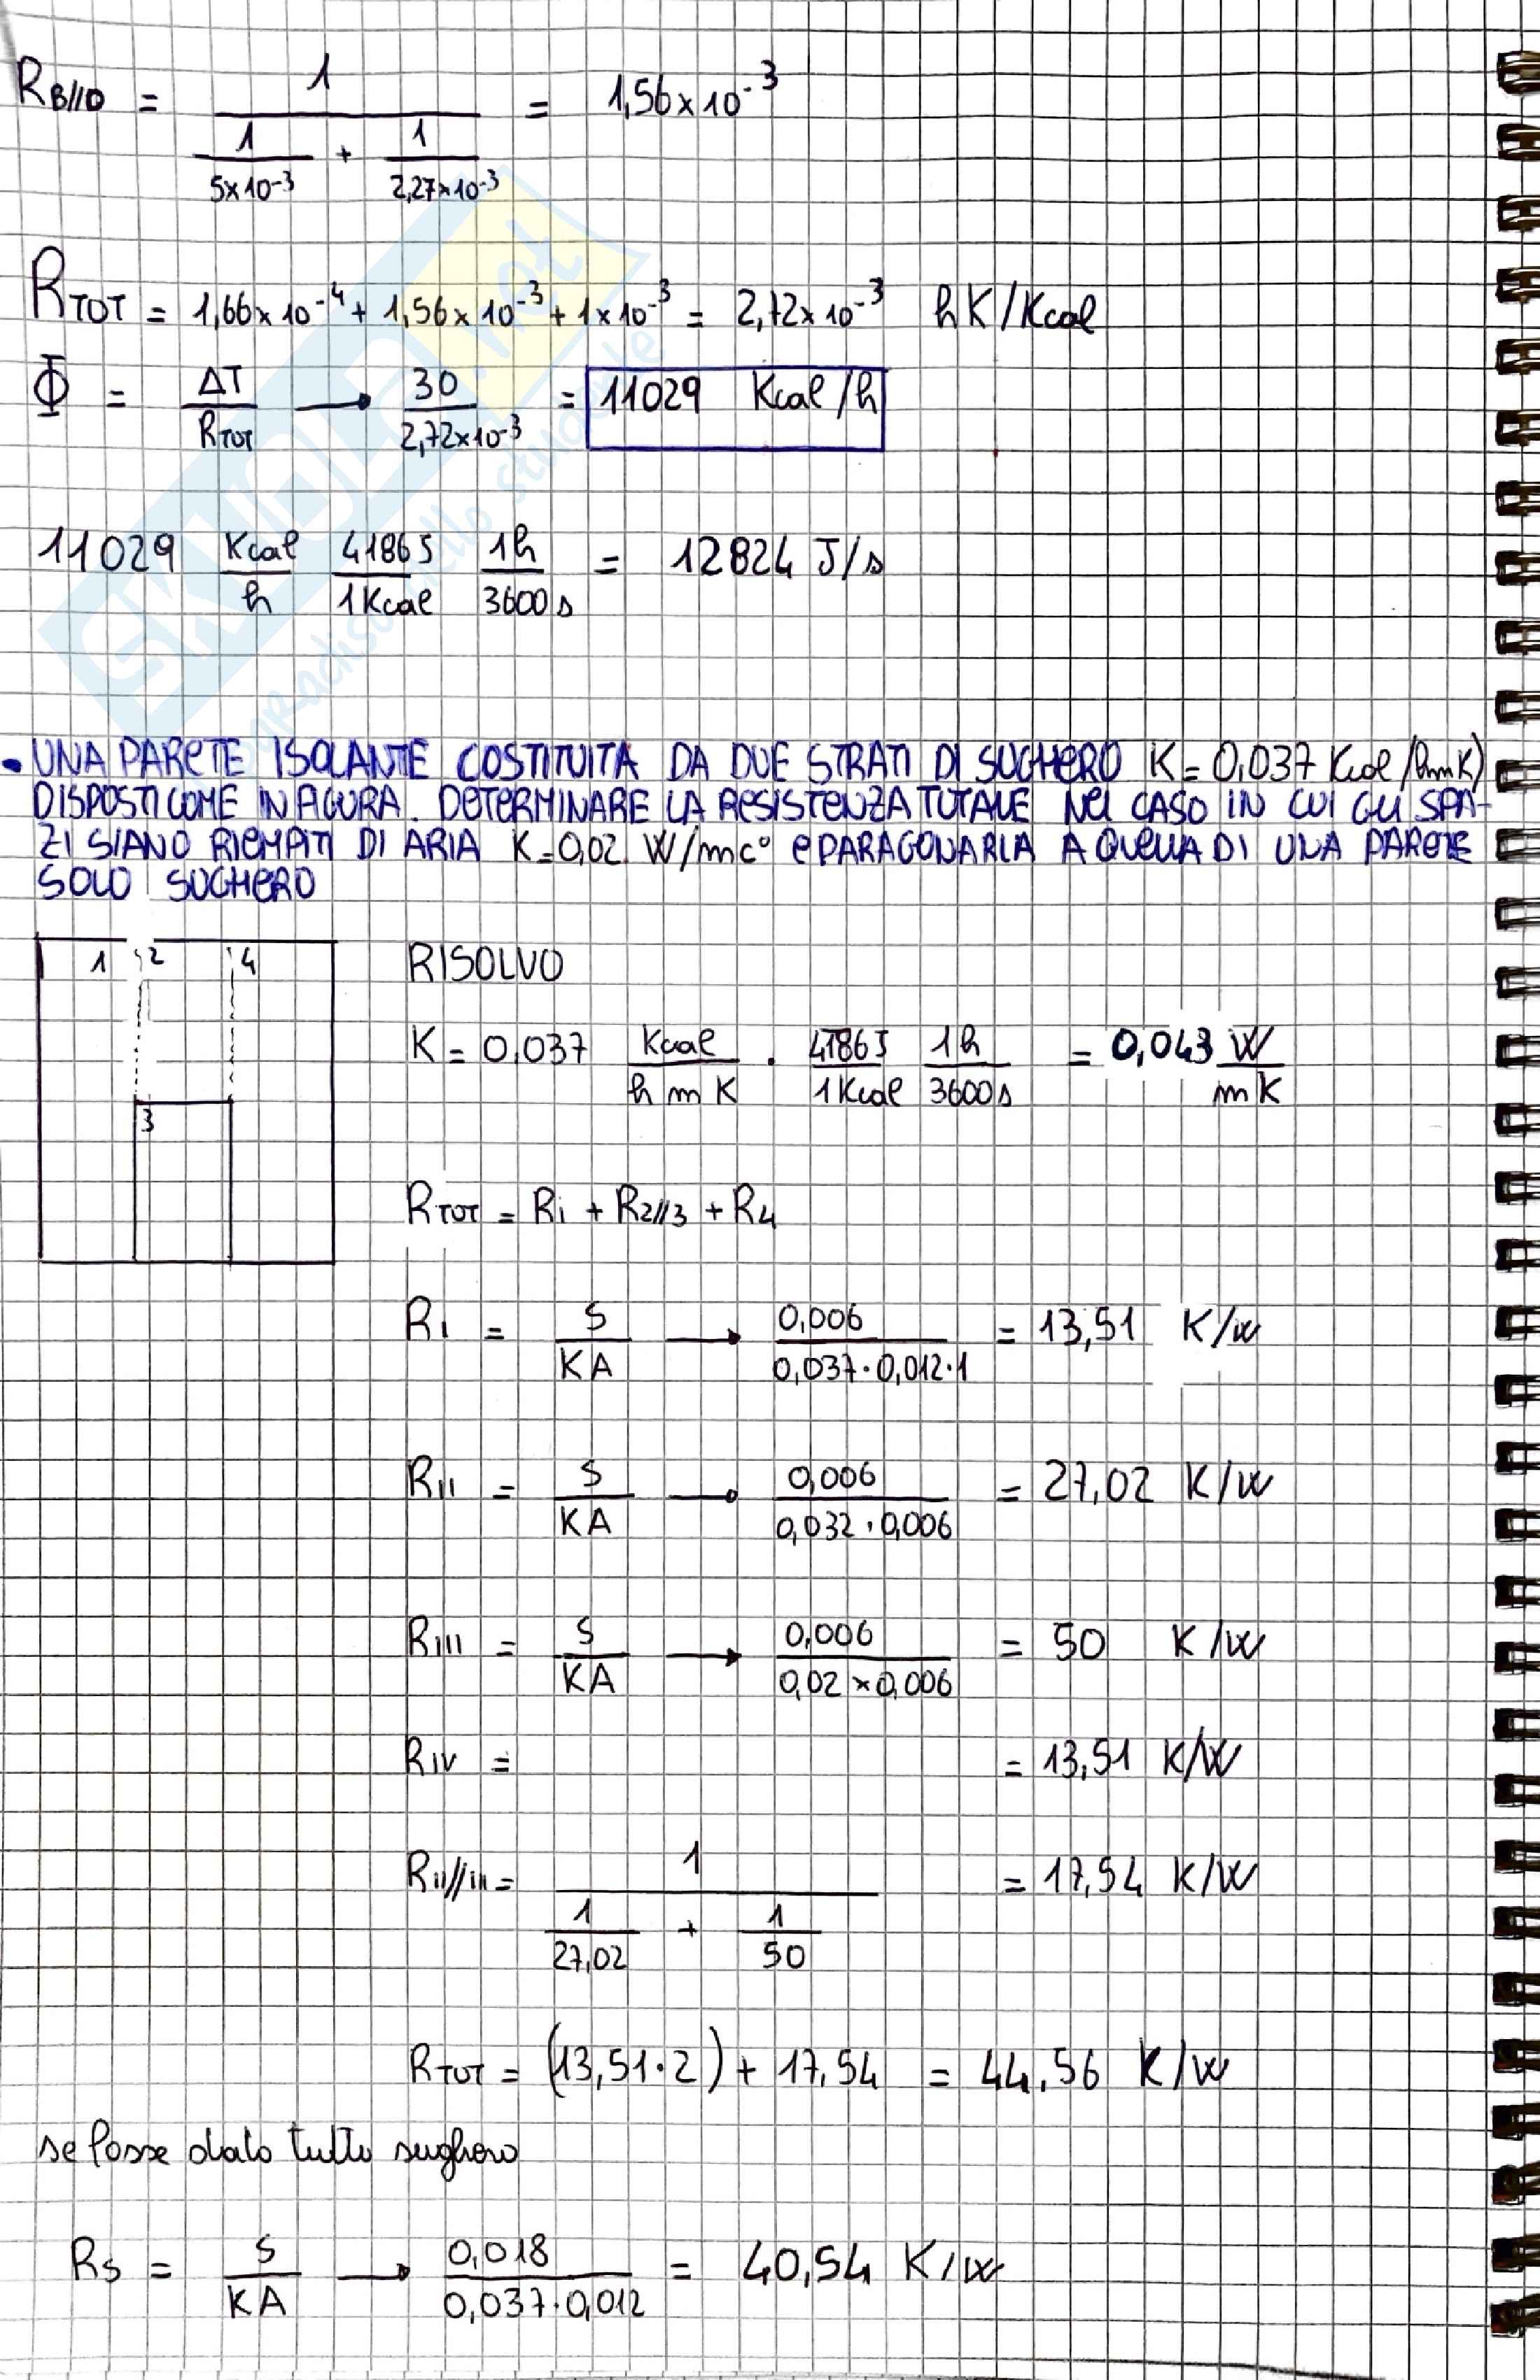 R_B//D = 1 / (1/5x10⁻³ + 1/2,27x10⁻³) = 1,56x10⁻³
R_TOT = 1,66x10⁻⁴ + 1,56x10⁻³ + 1x10⁻³ = 2,72x10⁻³ hK/Kcal
Φ = ΔT/R_TOT → 30/2,72x10⁻³ = 11029 Kcal/h
11029 Kcal/h 4186J/1Kcal 1h/3600s = 12824 J/s
• UNA PARETE ISOLANTE COSTITUITA DA DUE STRATI DI SUGHERO K= 0,037 Kcal/(hmK)
DISPOSTI COME IN FIGURA. DETERMINARE LA RESISTENZA TOTALE NEL CASO IN CUI GLI SPA-
ZI SIANO RIEMPITI DI ARIA K=0,02 W/mc° e PARAGONARLA A QUELLA DI UNA PARETE
SOLO SUGHERO
1 2 4
3
RISOLVO
K = 0,037 Kcal/h m K · 4186J/1Kcal 1h/3600s = 0,043 W/mK
R_TOT = R₁ + R₂//₃ + R₄
R_I = S/KA → 0,006/0,037·0,012·1 = 13,51 K/W
R_II = S/KA → 0,006/0,032·0,006 = 27,02 K/W
R_III = S/KA → 0,006/0,02x0,006 = 50 K/W
R_IV = = 13,51 K/W
R_II//III = 1 / (1/27,02 + 1/50) = 17,54 K/W
R_TOT = (13,51·2) + 17,54 = 44,56 K/W
se fosse dato tutto sughero
R_S = S/KA → 0,018/0,037·0,012 = 40,54 K/W
SKUOLA.net